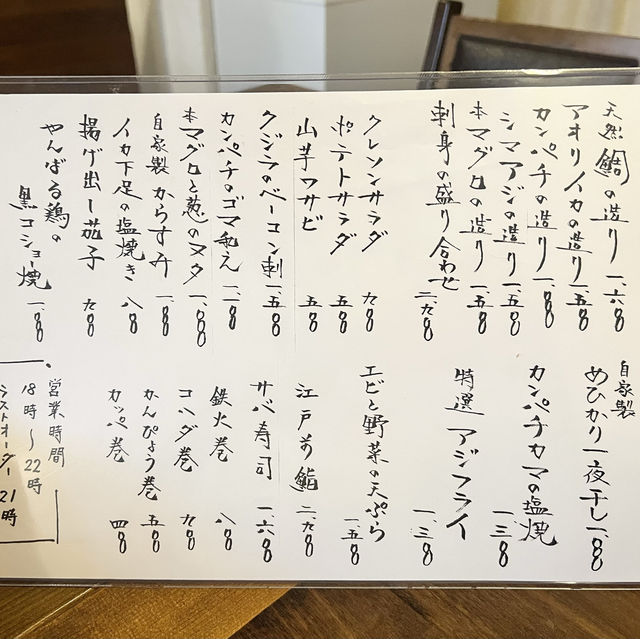 天然鯛の造り 一、六〇〇
アオリイカの造り 一、五〇〇
カンパチの造り 一、〇〇〇
シマアジの造り 一、五〇〇
本マグロの造り 一、五〇〇
刺身の盛り合わせ 二、九〇〇
クレソンサラダ 九〇〇
ポテトサラダ 五〇〇
山芋ワサビ 五〇〇
クジラのベーコン刺 一、五〇〇
カンパチのゴマ和え 一、一〇〇
本マグロと葱のヌタ 一、〇〇〇
自家製からすみ 一、〇〇〇
イカ下足の塩焼き 八〇〇
揚げ出し茄子 九〇〇
やんばる鶏の
黒コショー焼 一、〇〇〇
自家製
めひかり一夜干し 一、〇〇〇
カンパチカマの塩焼 一、三〇〇
特選 アジフライ 一、三〇〇
エビと野菜の天ぷら 一、五〇〇
江戸前鮨 二、九〇〇
サバ寿司 一、六〇〇
鉄火巻 八〇〇
コハダ巻 九〇〇
かんぴょう巻 五〇〇
カッパ巻 四〇〇
営業時間
18時〜22時
ラストオーダー21時